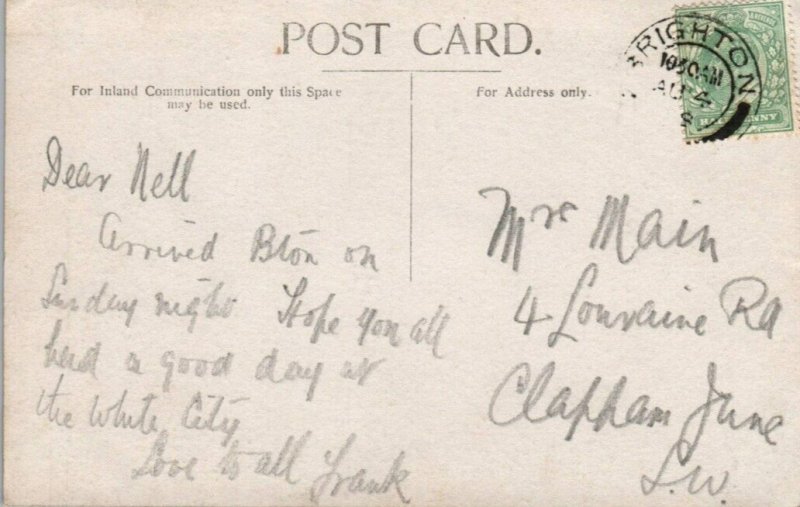 POST CARD.
For Inland Communication only this Space
may be used.
For Address only.
BRIGHTON
1030AM
AU 4
8
HALFPENNY
Dear Nell
Arrived Bton on
Sunday night Hope you all
had a good day at
the White City
Love to all Frank
Mrs Main
4 Louvaine Rd
Clapham Junc
S.W.